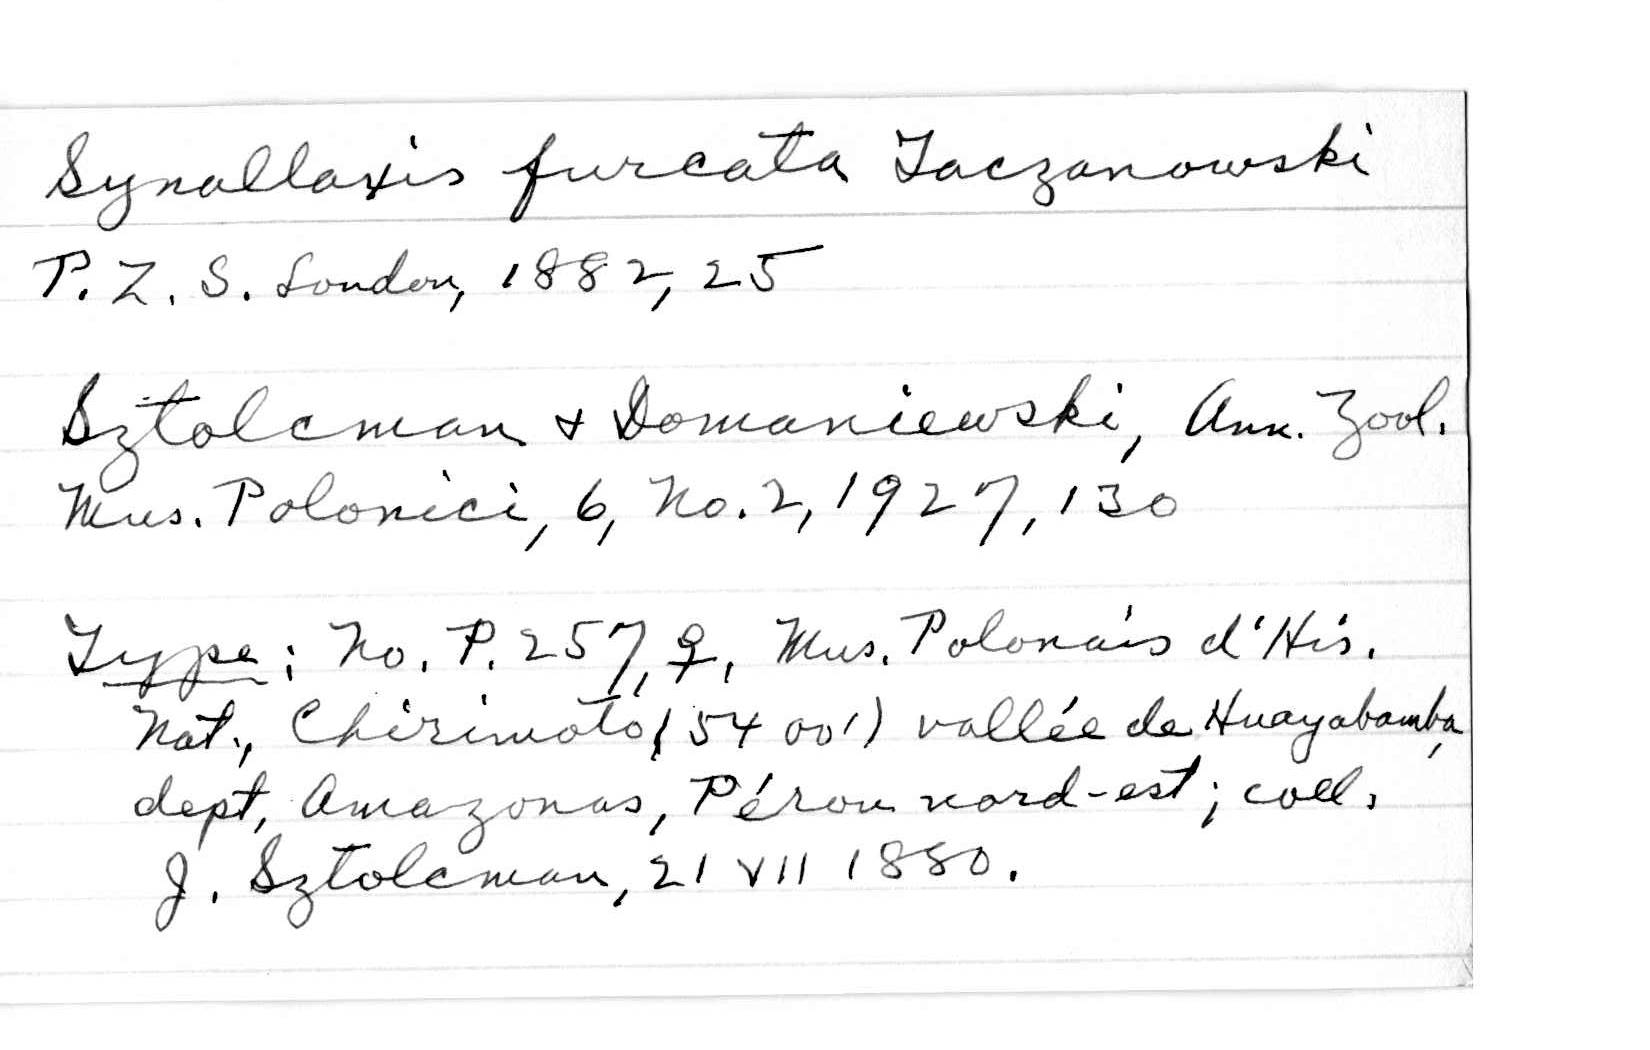 Synallaxis furcata Taczanowski
P. Z. S. London, 1882, 25
Sztolcman & Domaniewski, Ann. Zool.
Mus. Polonici, 6, No. 2, 1927, 130
Type: No. P. 257, ♀, Mus. Polonais d'His.
Nat., Chirimoto (5400') vallée de Huayabamba,
dept, Amazonas, Pérou nord-est; coll.
J. Sztolcman, 21 VII 1880.